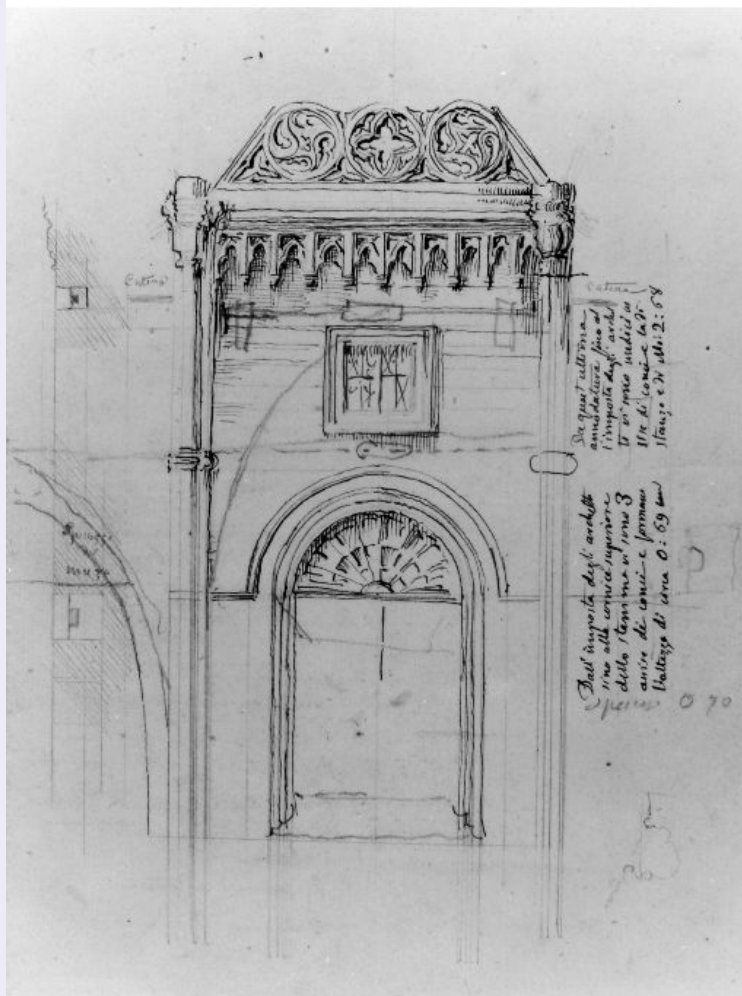 Catena
Catena
Da quest'ultima
annodatura fino al
l'imposta degli archet
ti vi sono undici as
sise di conci e la di
stanza è di Mi: 2:68
Dall'imposta degli archetti
sino alla cornice superiore
dello stemma vi sono 3
assise di conci e formano
l'altezza di circa 0:69 cm
Spessore 0 70
Spessore
del
muro